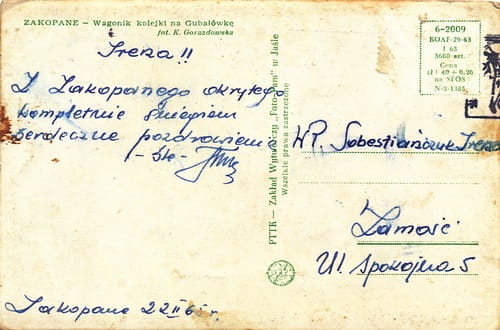 ZAKOPANE – Wagonik kolejki na Gubałówkę
fot. K. Gorazdowska
Irena !!
Z Zakopanego okrytego
kompletnie śniegiem
serdeczne pozdrowienia
-śle-
Zakopane 22 II 65 r.
PTTK — Zakład Wytwórczy „Foto-Pam” w Jaśle
Wszelkie prawa zastrzeżone
6-2009
KOAF-29-63
I 65
3600 szt.
Cena
zł 1 40 + 0,20
na SFOS
N-3-1385
WP. Sobestiańczuk Irena
Zamość
Ul. Spokojna 5